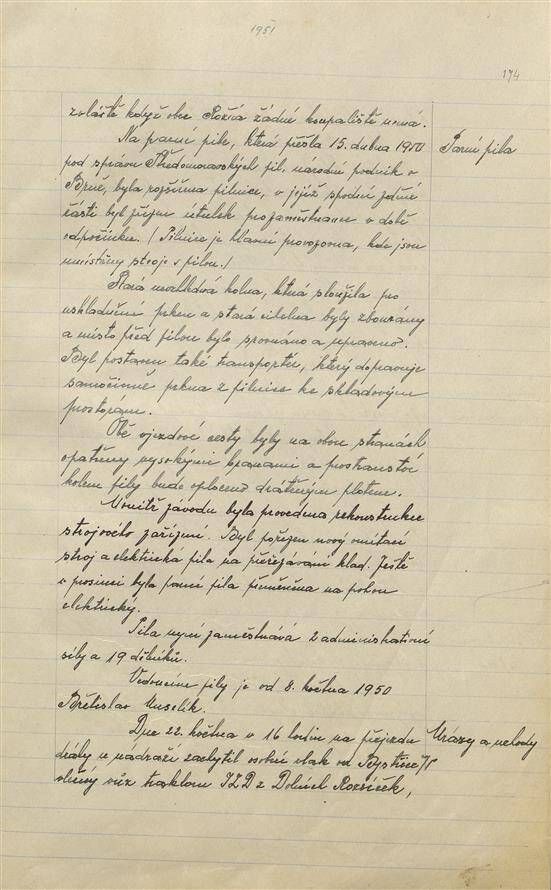 1951
174
zvláště když obec Rožná žádné koupaliště nemá.
Na parní pile, která přešla 15. dubna 1950
Parní pila
pod správu Středomoravských pil, národní podnik v
Brně, byla rozšířena pilnice, v jejíž spodní zadní
části byl zřízen útulek pro zaměstnance v době
odpočinku. (Pilnice je hlavní provozovna, kde jsou
umístěny stroje s pilou.)
Stará kolna, která sloužila pro
uskladnění prken a stará cihelna byly zbourány
a místo před pilou bylo srovnáno a upraveno.
Byl postaven také transportér, který dopravuje
samočinně prkna z pilnice ke skladovým
prostorám.
Obě vjezdové cesty byly na obou stranách
opatřeny vysokými branami a prostranství
kolem pily bude oploceno drátěným plotem.
Uvnitř závodu byla provedena rekonstrukce
strojového zařízení. Byl pořízen nový omítací
stroj a elektrická pila na přeřezávání klad. Ještě
v prosinci byla parní pila přeměněna na pohon
elektrický.
Pila nyní zaměstnává 2 administrativní
síly a 19 dělníků.
Vedoucím pily je od 8. května 1950
Břetislav Muselík.
Dne 22. května v 16 hodin na přejezdu
Úrazy a nehody
dráhy u nádraží zachytil osobní vlak od Bystřice n/P
vlečný vůz traktoru JZD z Dolních Rozsíček,